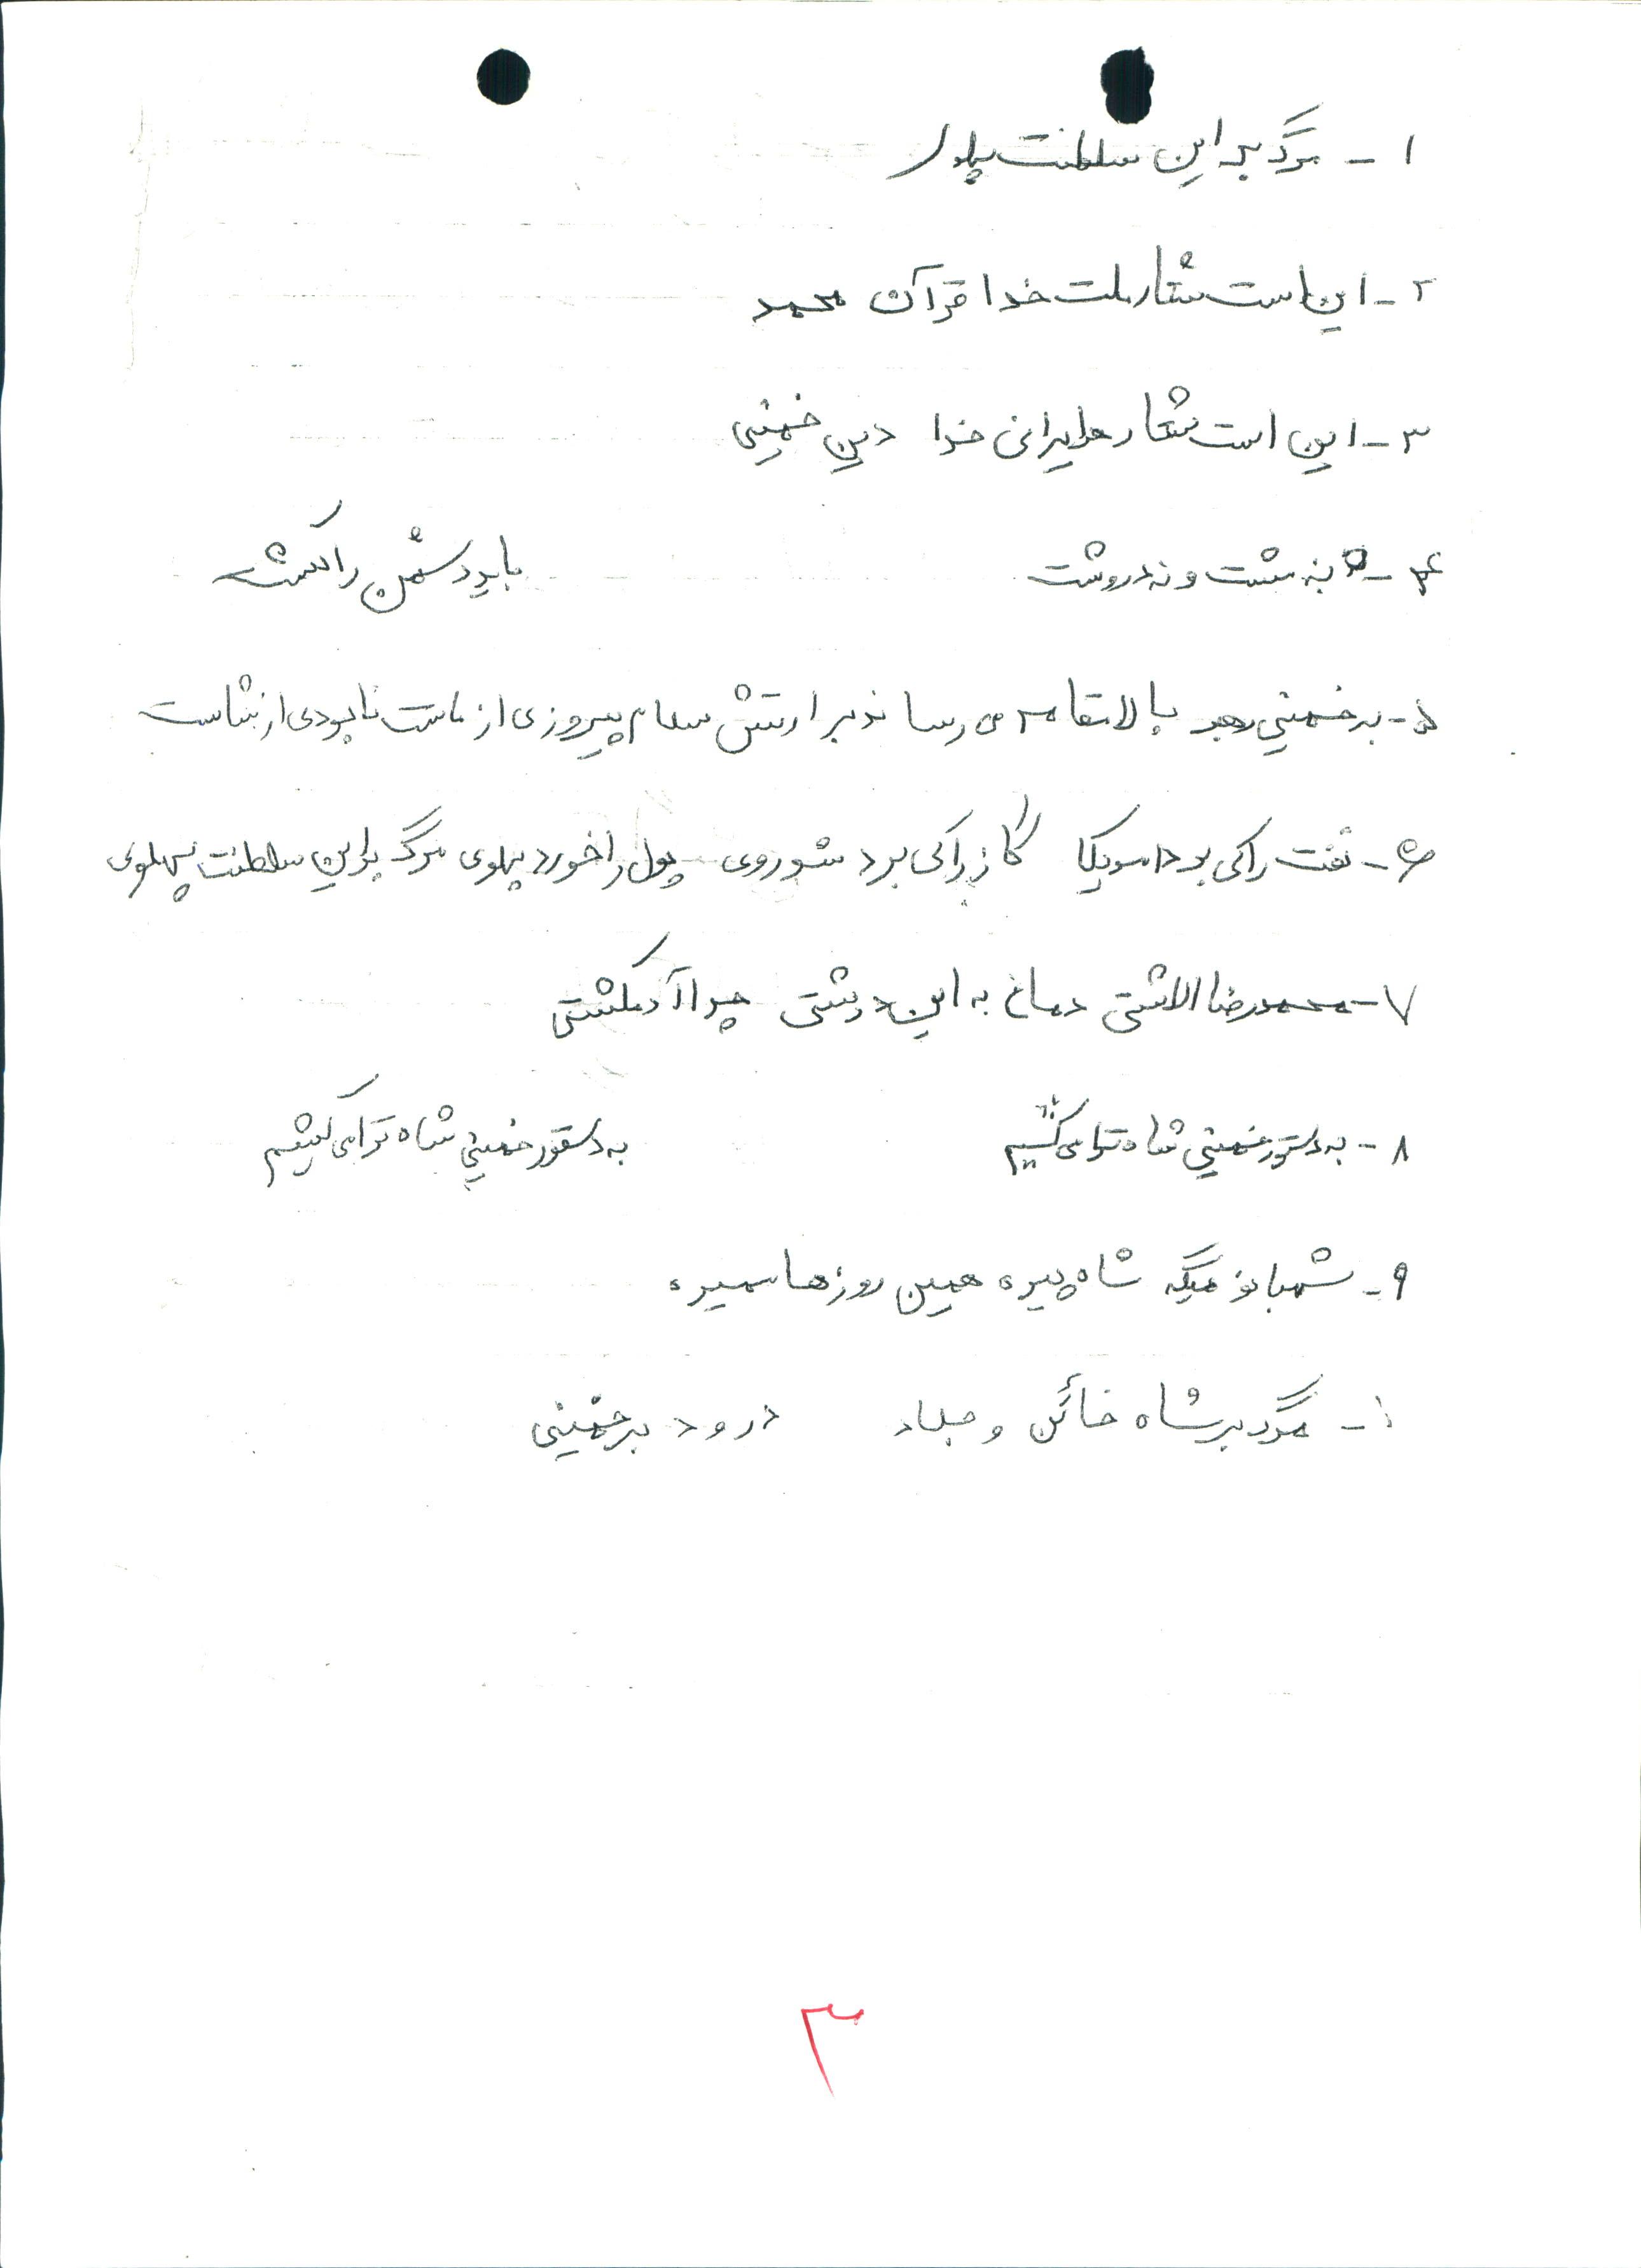 ۱ - مرگ بر این سلطنت پهلوی
۲ - این است شعار ملت خدا قرآن محمد
۳ - این است شعار هر ایرانی خدا دین خمینی
۴ - نه مشت و نه دروشت باید دشمن را کشت
۵ - بر خمینی رهبر بالا مقام می رساند بر ارتش سلام پیروزی از ماست نابودی از شاست
۶ - نفت را کی برد امریکا گاز را کی برد شوروی پول را خورد پهلوی مرگ بر این سلطنت پهلوی
۷ - محمدرضا الاشتی دماغ به این درشتی چرا آدم کشتی
۸ - به دستور خمینی شاه ترا می کشیم به دستور خمینی شاه ترا می کشیم
۹ - شهبانو میگه شاه پیره همین روزها میمیره
۱۰ - مرگ بر شاه خائن و جلاد درود بر خمینی
۳